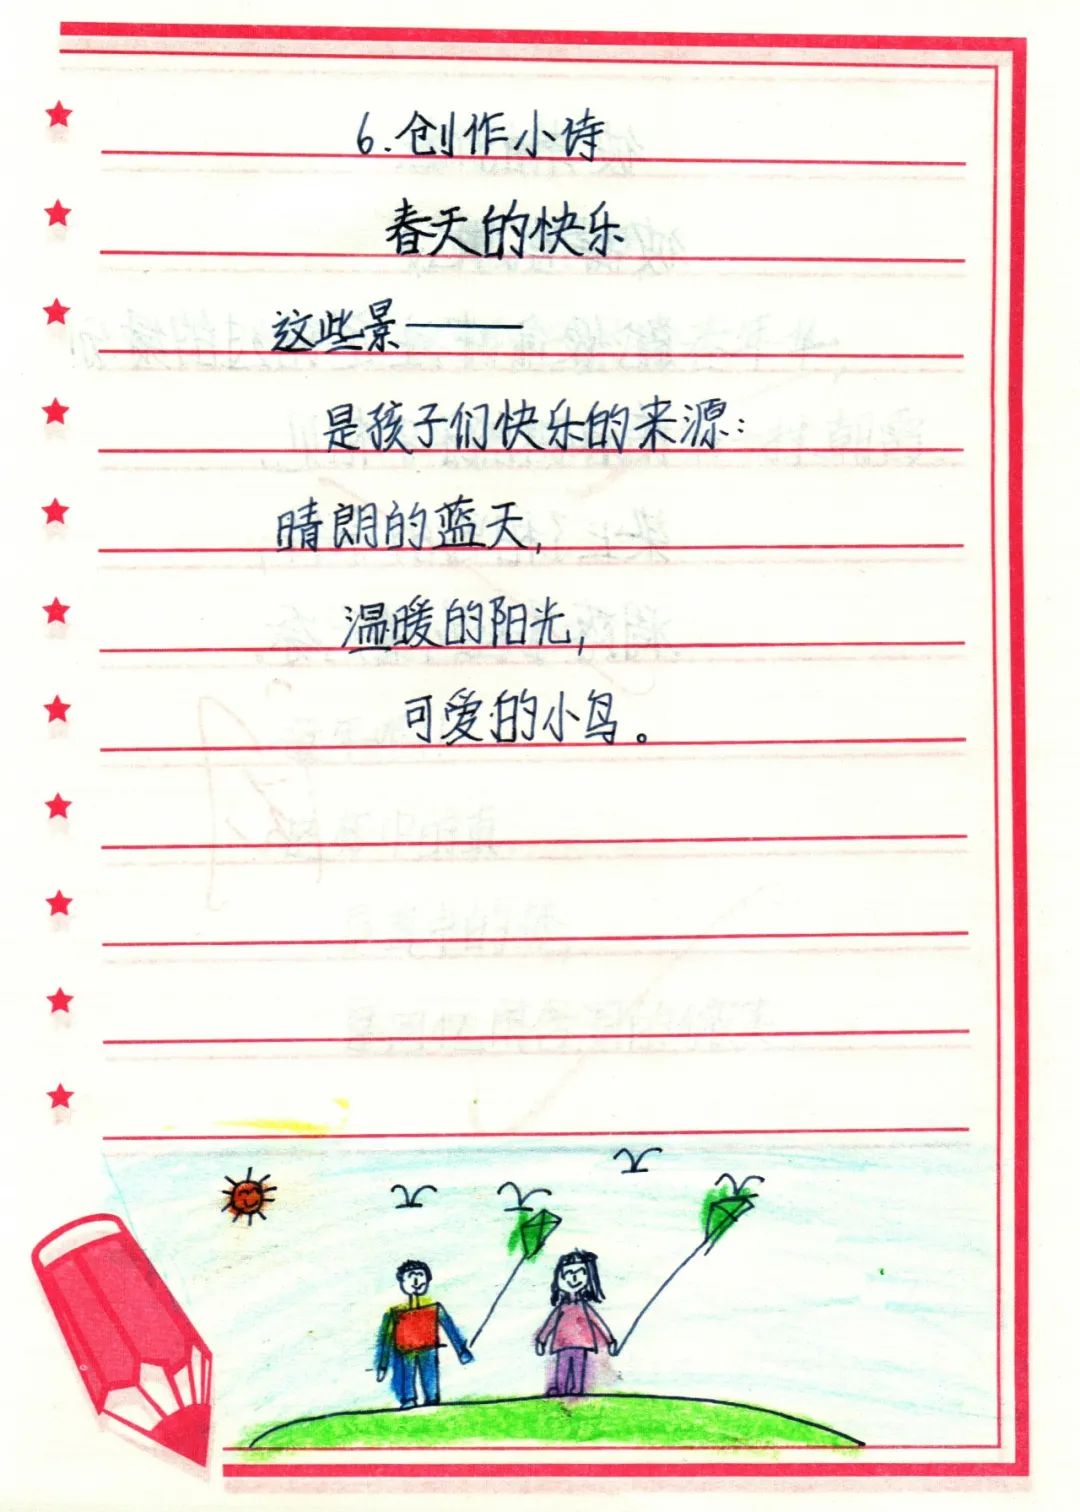 6.创作小诗
春天的快乐
这些景——
是孩子们快乐的来源:
晴朗的蓝天,
温暖的阳光,
可爱的小鸟。